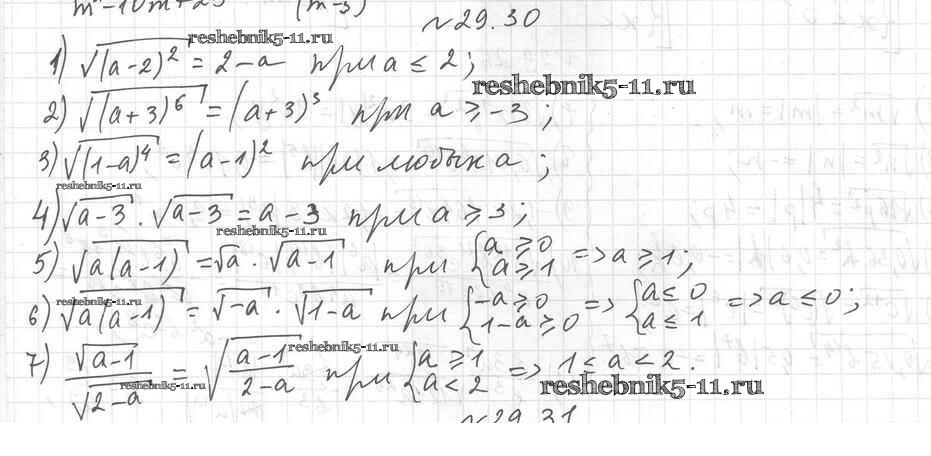 m²-10m+25 (m-5)
№29.30
reshebnik5-11.ru
1) √(a-2)² = 2-a при a ≤ 2;
reshebnik5-11.ru
2) √(a+3)⁶ = (a+3)³ при a ≥ -3;
3) √(1-a)⁴ = (a-1)² при любых a;
reshebnik5-11.ru
4) √a-3 · √a-3 = a-3 при a ≥ 3;
reshebnik5-11.ru
5) √a(a-1) = √a · √a-1 при {a ≥ 0 a ≥ 1 => a ≥ 1;
reshebnik5-11.ru
6) √a(a-1) = √-a · √1-a при {-a ≥ 0 1-a ≥ 0 => {a ≤ 0 a ≤ 1 => a ≤ 0;
reshebnik5-11.ru
7) √a-1 / √2-a = √a-1 / 2-a при {a ≥ 1 a < 2 => 1 ≤ a < 2.
reshebnik5-11.ru
reshebnik5-11.ru
№29.31